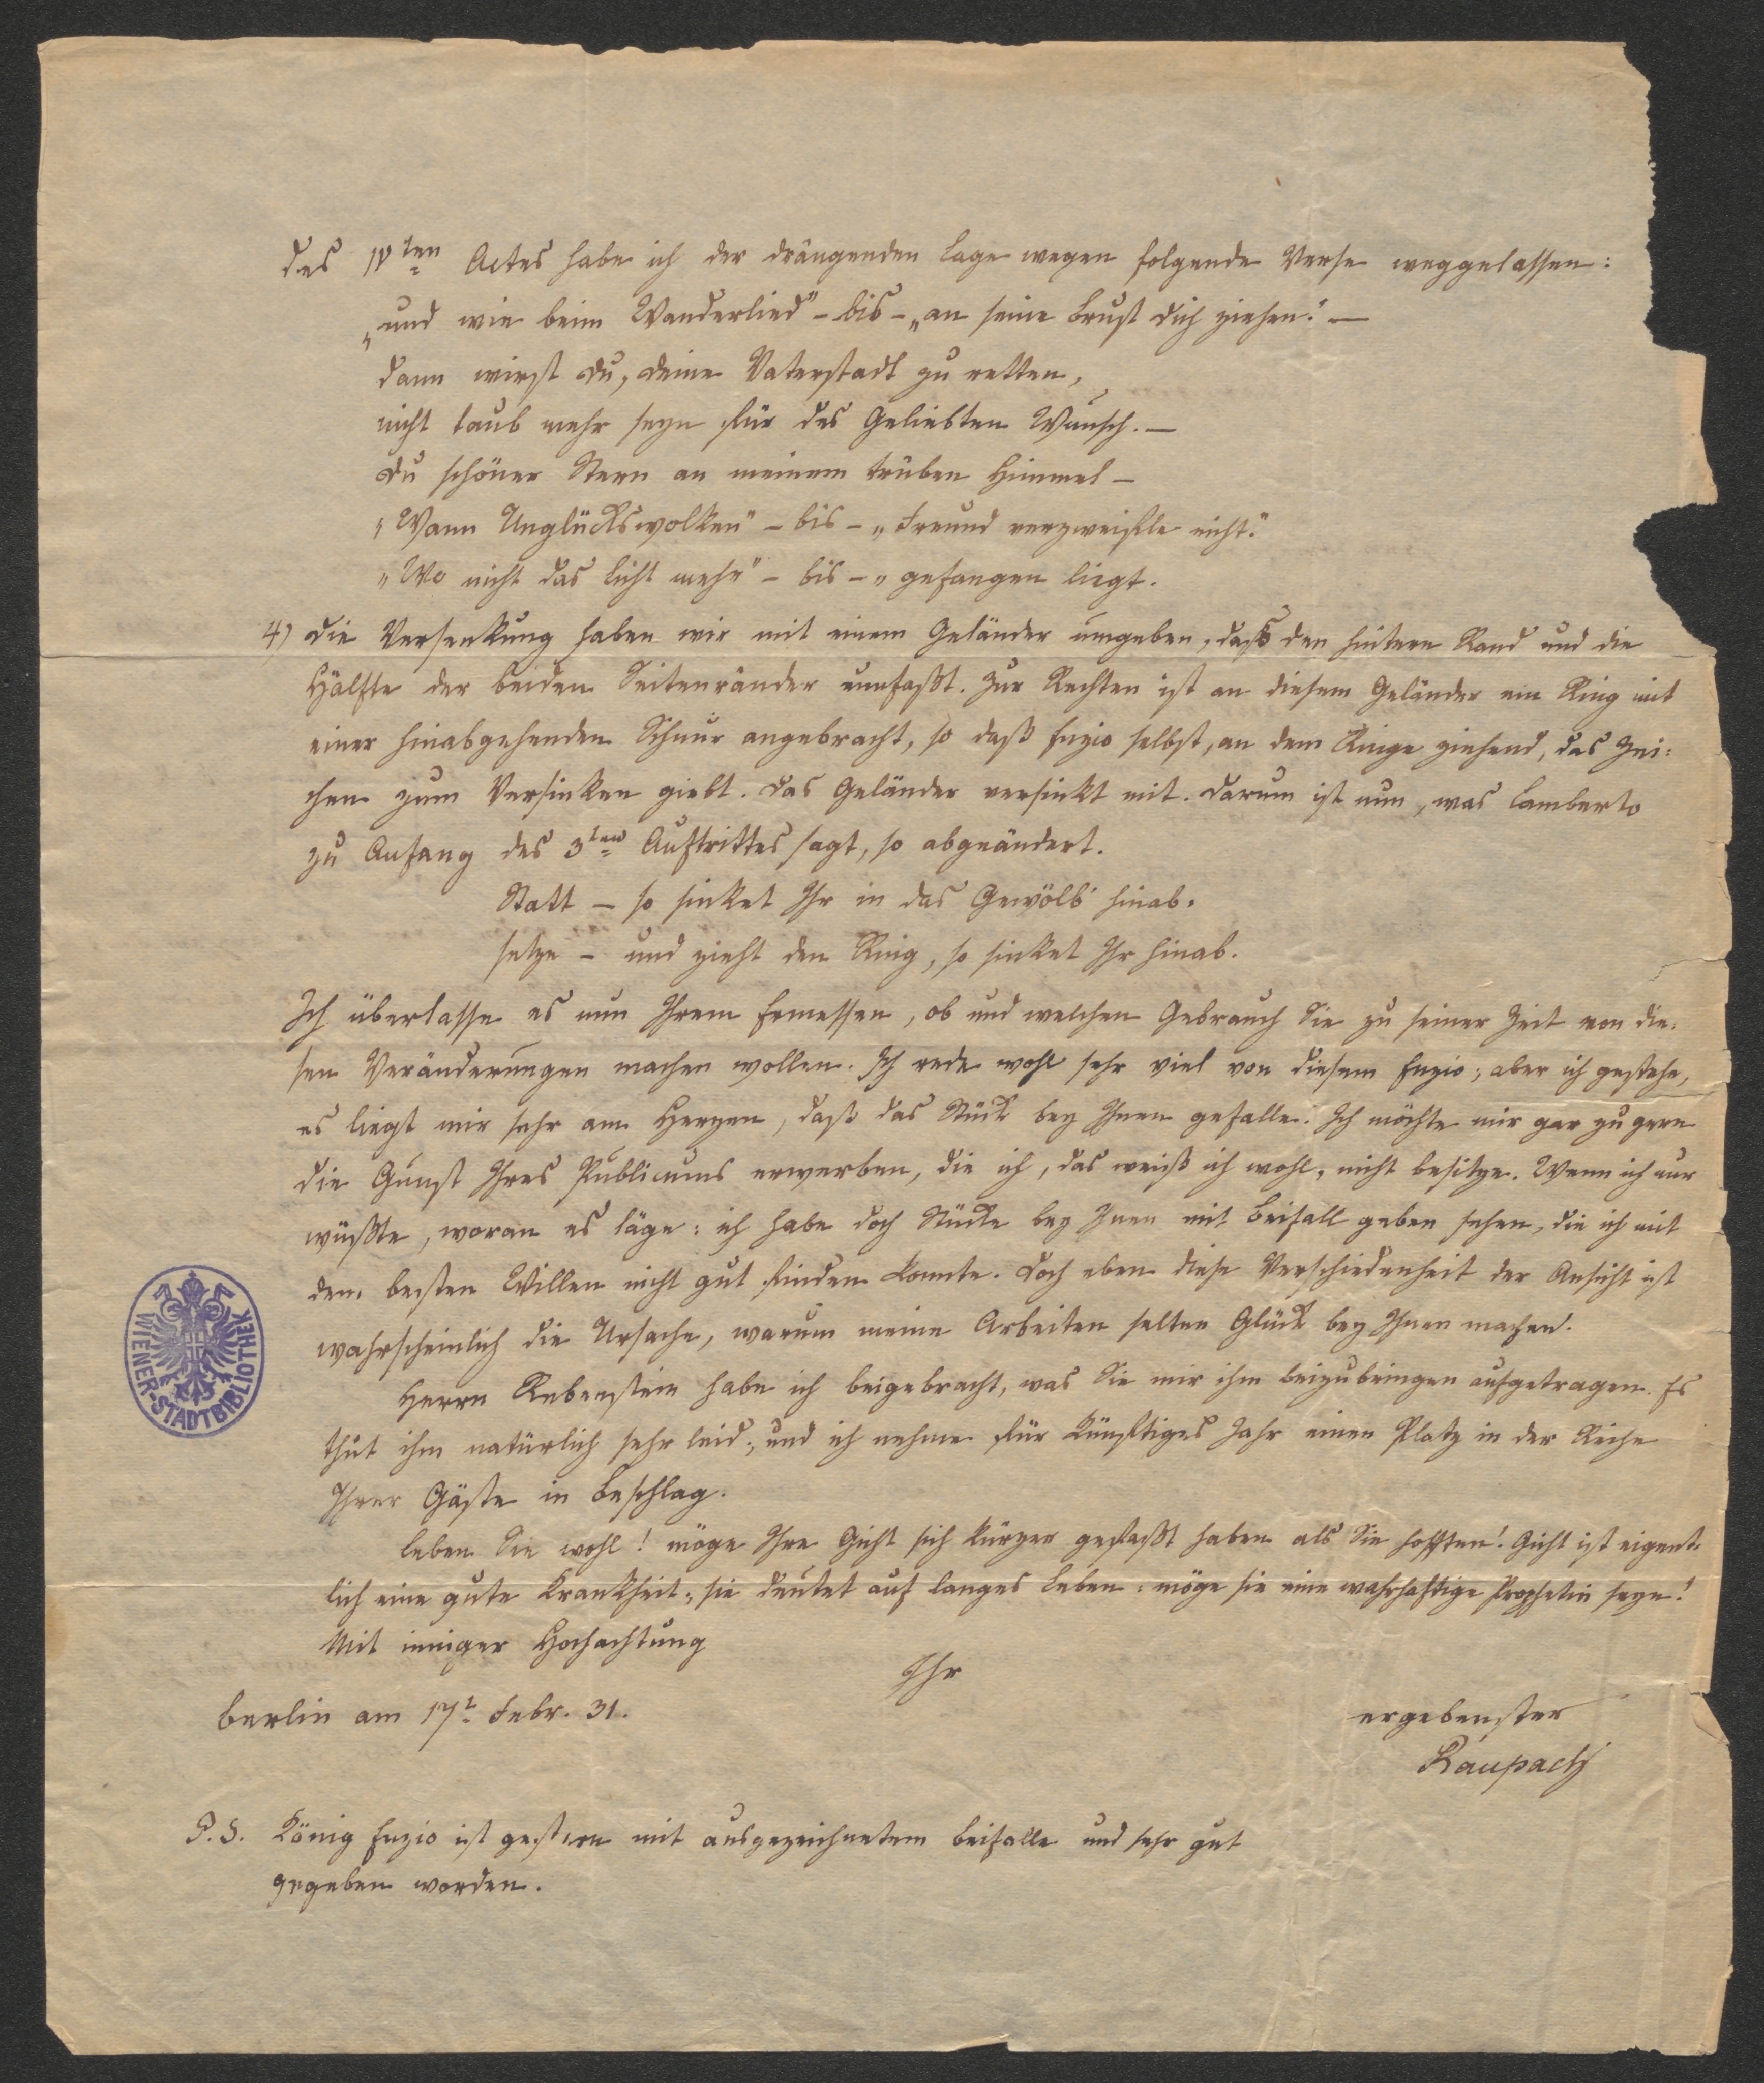 des IVten Actes habe ich der drängenden Lage wegen folgende Verse weggelassen:
„und wie beim Wanderlied" – bis – „an seine Brust dich ziehen." –
dann wirst du, deine Vaterstadt zu retten,
nicht taub mehr seyn für des Geliebten Wunsch. –
Du schöner Stern an meinem trüben Himmel –
„Wann Unglückswolken" – bis – „Freund verzweifle nicht."
„Wo nicht das Licht mehr" – bis – „gefangen liegt.
4) Die Versenkung haben wir mit einem Geländer umgeben, daß den hintern Rand und die
Hälfte der beiden Seitenränder umfaßt. Zur Rechten ist an diesem Geländer ein Ring mit
einer hinabgehenden Schnur angebracht, so daß Enzio selbst, an dem Ringe ziehend, das Zei:
chen zum Versinken giebt. Das Geländer versinkt mit. Darum ist nun, was Lamberto
zu Anfang des 3ten Auftrittes sagt, so abgeändert.
Statt – so sinket Ihr in das Gewölb' hinab.
setze – und zieht den Ring, so sinket Ihr hinab.
Ich überlasse es nun Ihrem Ermessen, ob und welchen Gebrauch Sie zu seiner Zeit von die:
sen Veränderungen machen wollen. Ich rede wohl sehr viel von diesem Enzio; aber ich gestehe,
es liegt mir sehr am Herzen, daß das Stück bey Ihnen gefalle. Ich möchte mir gar zu gern
die Gunst Ihres Publicums erwerben, die ich, das weiß ich wohl, nicht besitze. Wenn ich nur
wüßte, woran es läge: ich habe doch Stücke bey Ihnen mit Beifall geben sehen, die ich mit
dem besten Willen nicht gut finden konnte. Doch eben diese Verschiedenheit der Ansicht ist
wahrscheinlich die Ursache, warum meine Arbeiten selten Glück bey Ihnen machen.
Herrn Rebenstein habe ich beigebracht, was Sie mir ihm beizubringen aufgetragen. Es
thut ihm natürlich sehr leid; und ich nehme für künftiges Jahr einen Platz in der Reihe
Ihrer Gäste in Beschlag.
Leben Sie wohl! möge Ihre Gicht sich kürzer gefaßt haben als Sie hofften! Gicht ist eigent:
lich eine gute Krankheit; sie deutet auf langes Leben: möge sie eine wahrhaftige Prophetin seyn!
Mit inniger Hochachtung
Ihr
Berlin am 17t Febr. 31.
ergebenster
Raupach
P.S. König Enzio ist gestern mit ausgezeichnetem Beifalle und sehr gut
gegeben worden.
WIENER-STADTBIBLIOTHEK